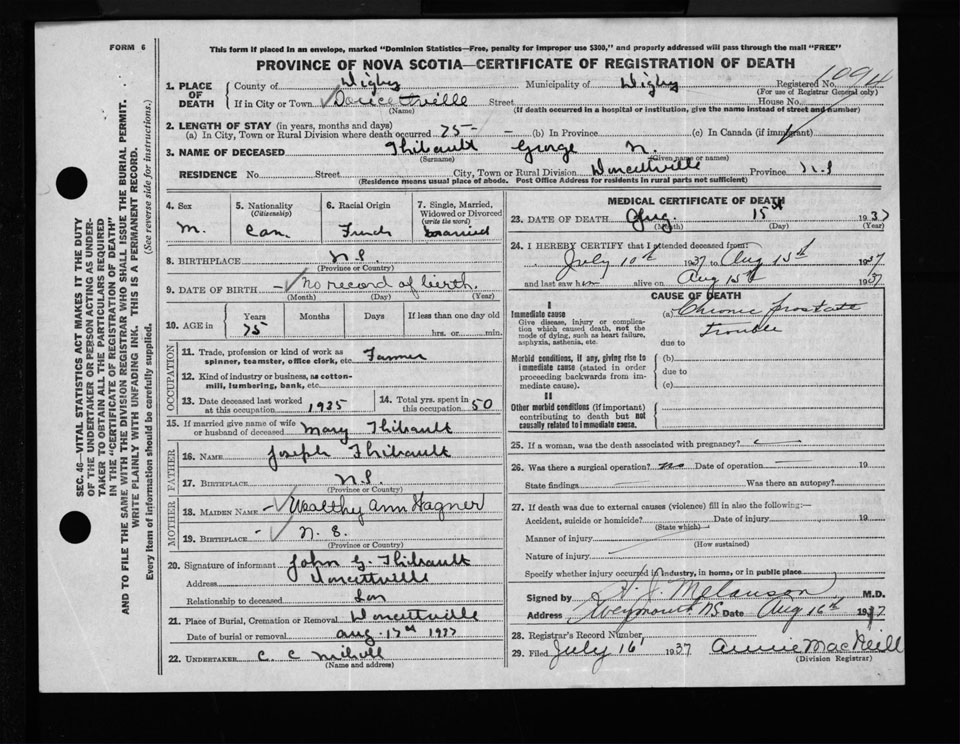 FORM 6
This form if placed in an envelope, marked "Dominion Statistics—Free, penalty for improper use $300," and properly addressed will pass through the mail "FREE"
PROVINCE OF NOVA SCOTIA—CERTIFICATE OF REGISTRATION OF DEATH
1. PLACE OF DEATH
County of Digby Municipality of Digby Registered No. 1094
(For use of Registrar General only)
If in City or Town Doucetville Street House No.
(Name) (If death occurred in a hospital or institution, give the name instead of street and number)
2. LENGTH OF STAY (in years, months and days)
(a) In City, Town or Rural Division where death occurred 75 - - (b) In Province (c) In Canada (if immigrant)
3. NAME OF DECEASED Thibault George N.
(Surname) (Given name or names)
RESIDENCE No. Street City, Town or Rural Division Doucettville Province N.S
(Residence means usual place of abode. Post Office Address for residents in rural parts not sufficient)
4. Sex M.
5. Nationality (Citizenship) Can.
6. Racial Origin French
7. Single, Married, Widowed or Divorced (write the word) Married
8. BIRTHPLACE N.S.
(Province or Country)
9. DATE OF BIRTH — No record of birth.
(Month) (Day) (Year)
10. AGE in Years Months Days If less than one day old
75 hrs. or min.
OCCUPATION
11. Trade, profession or kind of work as spinner, teamster, office clerk, etc. Farmer
12. Kind of industry or business, as cotton-mill, lumbering, bank, etc.
13. Date deceased last worked at this occupation 1935
14. Total yrs. spent in this occupation 50
15. If married give name of wife or husband of deceased Mary Thibault
FATHER
16. NAME Joseph Thibault
17. BIRTHPLACE N.S.
(Province or Country)
MOTHER
18. MAIDEN NAME Wealthy Ann Wagner
19. BIRTHPLACE N. S.
(Province or Country)
20. Signature of informant John G. Thibault
Address Doucettville
Relationship to deceased Son
21. Place of Burial, Cremation or Removal Doucettville
Date of burial or removal Aug. 17th 1937
22. UNDERTAKER C. C
(Name and address)
MEDICAL CERTIFICATE OF DEATH
23. DATE OF DEATH Aug. 15th 1937
(Month) (Day) (Year)
24. I HEREBY CERTIFY that I attended deceased from:
July 10th 1937 to Aug 15th 1937
and last saw him alive on Aug 15th 1937
CAUSE OF DEATH
I
Immediate cause
Give disease, injury or complication which caused death, not the mode of dying, such as heart failure, asphyxia, asthenia, etc.
(a) Chronic prostate
trouble
due to
Morbid conditions, if any, giving rise to immediate cause (stated in order proceeding backwards from immediate cause).
(b)
due to
(c)
II
Other morbid conditions (if important) contributing to death but not causally related to immediate cause.
25. If a woman, was the death associated with pregnancy?
26. Was there a surgical operation? No Date of operation 19
State findings Was there an autopsy?
27. If death was due to external causes (violence) fill in also the following:—
Accident, suicide or homicide? Date of injury 19
(State which)
Manner of injury
(How sustained)
Nature of injury
Specify whether injury occurred in industry, in home, or in public place
Signed by H. J. Melanson M.D.
Address Weymouth NS Date Aug 16th 1937
28. Registrar's Record Number
29. Filed July 16 1937 Annie MacNeill
(Division Registrar)
SEC. 46—VITAL STATISTICS ACT MAKES IT THE DUTY
OF THE UNDERTAKER OR PERSON ACTING AS UNDER-
TAKER TO OBTAIN ALL THE PARTICULARS REQUIRED
IN THE "CERTIFICATE OF REGISTRATION OF DEATH"
AND TO FILE THE SAME WITH THE DIVISION REGISTRAR WHO SHALL ISSUE THE BURIAL PERMIT.
WRITE PLAINLY WITH UNFADING INK. THIS IS A PERMANENT RECORD.
Every item of information should be carefully supplied. (See reverse side for instructions.)